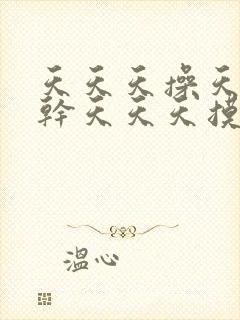 天天天操天
幹天天天摸
溫心